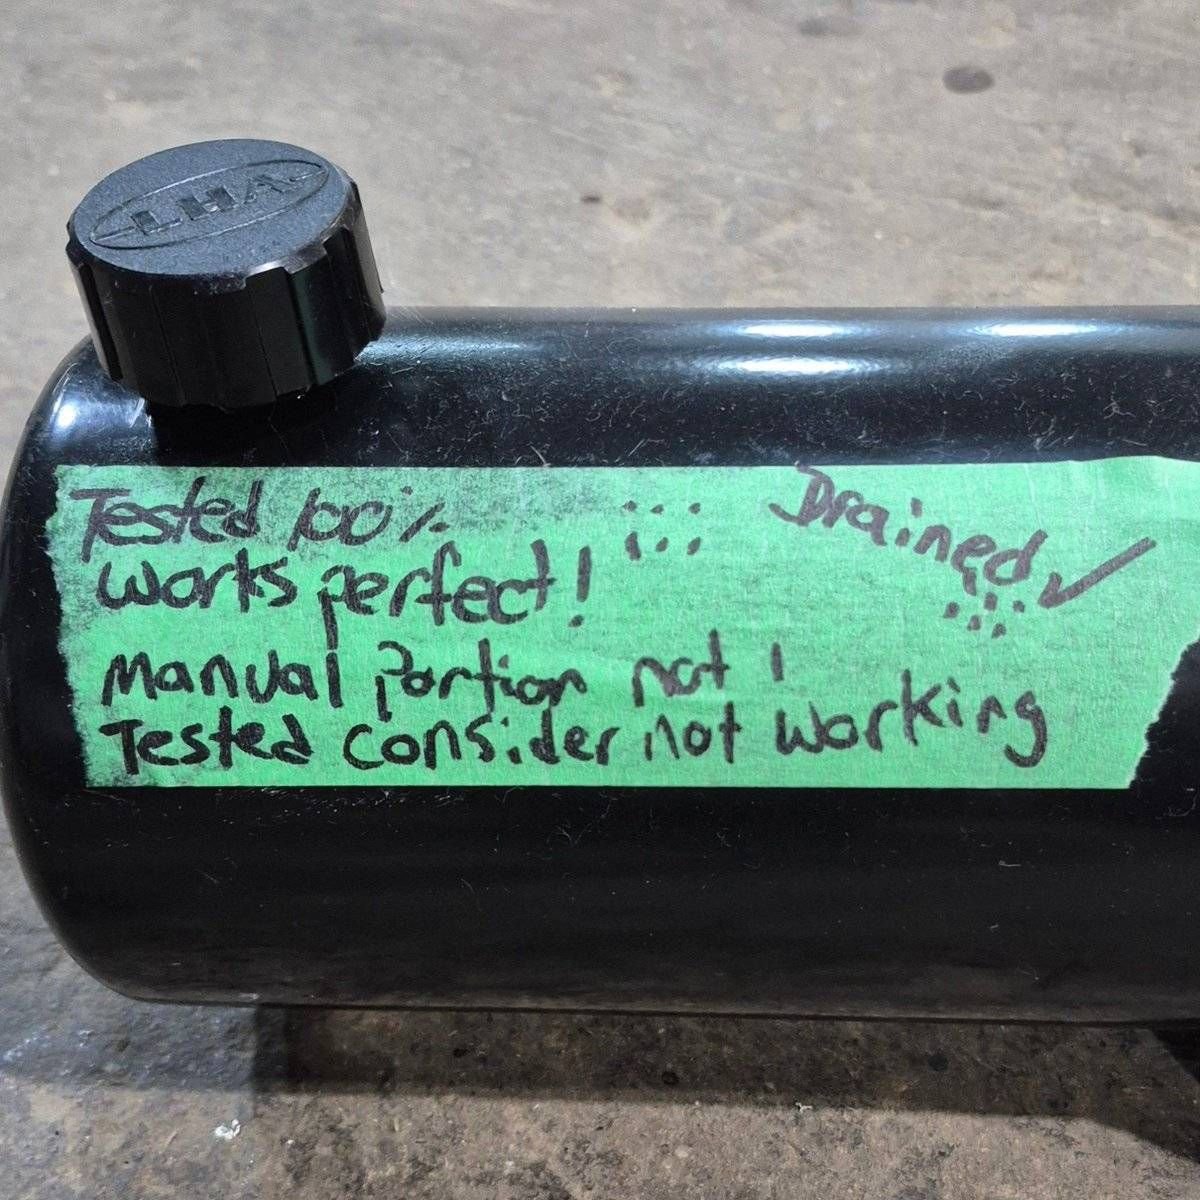 LHA
Tested 100%
works perfect!
Drained ✓
Manual Portion not
Tested consider not working